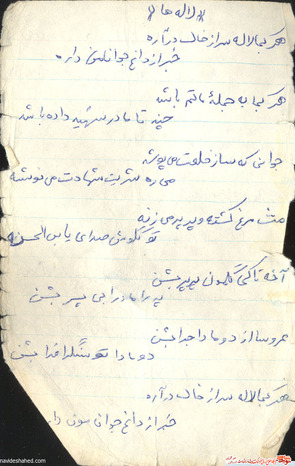 لاله ها
هر کجا لاله سر از خاک در آره
خبر از داغ جوانامون داره
هر کجا به حجلهٔ ماتم باشه
چند تا مادر شهید داده باشه
جوانی که ساز خلعت می پوشه
می ره شربت شهادت می نوشه
مث مرغ کشته و پرپر می زنه
تو گلوش صدای یا بن الحسنه
آخه تا کی گلمون پرپر بشن
پدرا مادرا بی پسر بشن
عروسا از دوماد جدا بشن
دومادا تو سنگرا فدا بشن
هر کجا لاله سر از خاک در آره
خبر از داغ جوانی مون داره
navideshahed.com